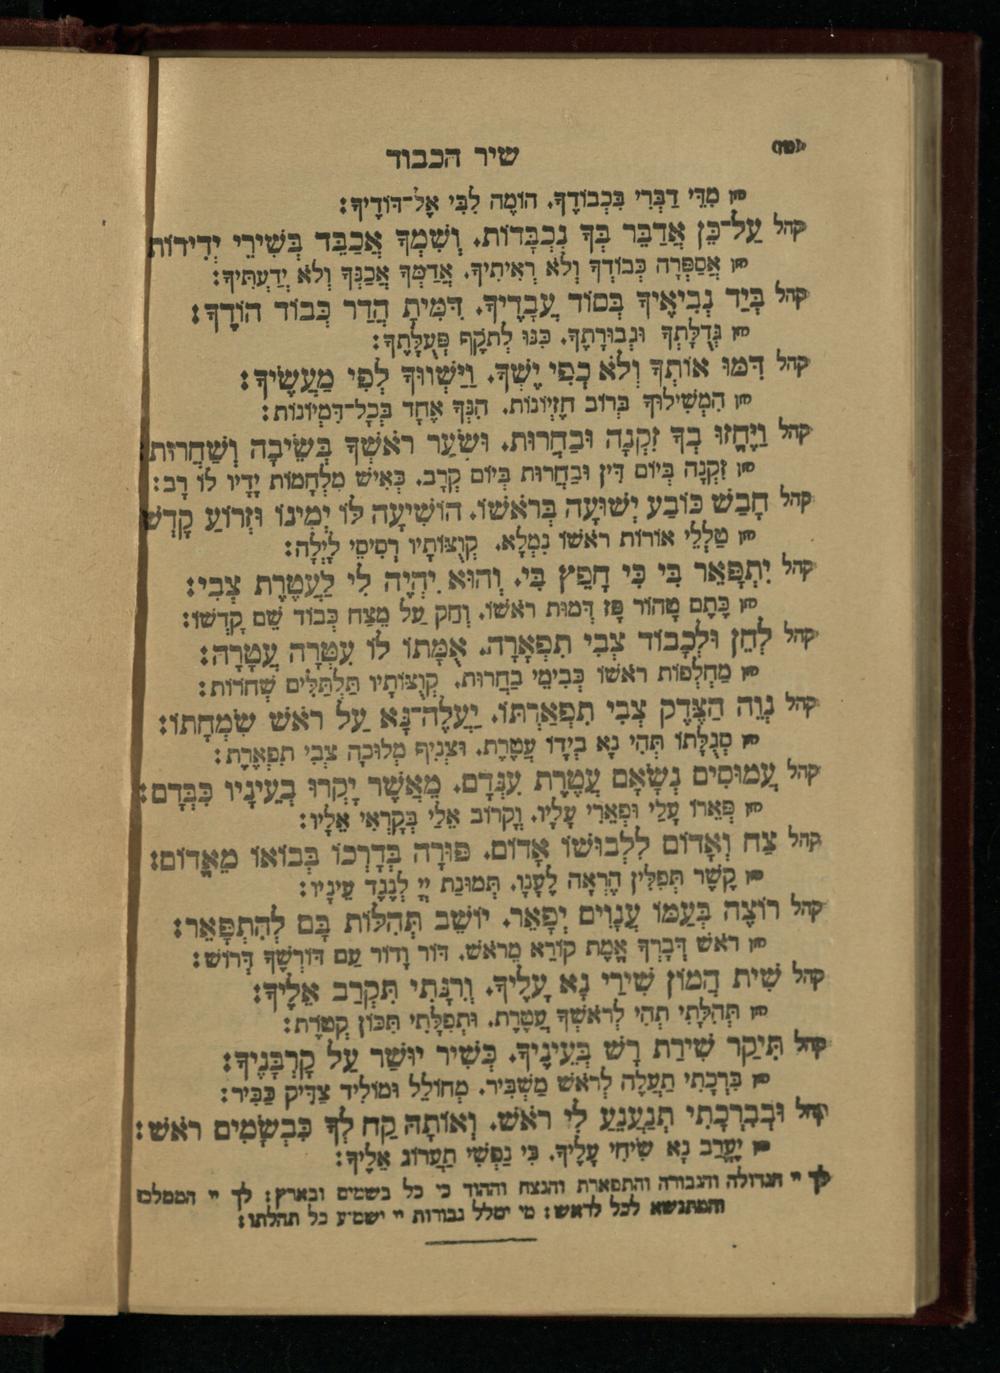 שיר הכבוד
חזן מִדֵּי דַבְּרִי בִּכְבוֹדֶךָ. הוֹמֶה לִבִּי אֶל־דּוֹדֶיךָ:
קהל עַל־כֵּן אֲדַבֵּר בְּךָ נִכְבָּדוֹת. וְשִׁמְךָ אֲכַבֵּד בְּשִׁירֵי יְדִידוֹת
חזן אֲסַפְּרָה כְּבוֹדְךָ וְלֹא רְאִיתִיךָ. אֲדַמְּךָ אֲכַנְּךָ וְלֹא יְדַעְתִּיךָ:
קהל בְּיַד נְבִיאֶיךָ בְּסוֹד עֲבָדֶיךָ. דִּמִּיתָ הֲדַר כְּבוֹד הוֹדֶךָ:
חזן גְּדֻלָּתְךָ וּגְבוּרָתֶךָ. כִּנּוּ לְתֹקֶף פְּעֻלָּתֶךָ:
קהל דִּמּוּ אוֹתְךָ וְלֹא כְּפִי יֶשְׁךָ. וַיְשַׁווּךָ לְפִי מַעֲשֶׂיךָ:
חזן הִמְשִׁילוּךָ בְּרוֹב חֶזְיוֹנוֹת. הִנְּךָ אֶחָד בְּכָל־דִּמְיוֹנוֹת:
קהל וַיֶּחֱזוּ בְךָ זִקְנָה וּבַחֲרוּת. וּשְׂעַר רֹאשְׁךָ בְּשֵׂיבָה וְשַׁחֲרוּת
חזן זִקְנָה בְּיוֹם דִּין וּבַחֲרוּת בְּיוֹם קְרָב. כְּאִישׁ מִלְחָמוֹת יָדָיו לוֹ רָב:
קהל חָבַשׁ כּוֹבַע יְשׁוּעָה בְּרֹאשׁוֹ. הוֹשִׁיעָה לּוֹ יְמִינוֹ וּזְרוֹעַ קָדְשׁ
חזן טַלְלֵי אוֹרוֹת רֹאשׁוֹ נִמְלָא. קְוֻצּוֹתָיו רְסִיסֵי לָיְלָה:
קהל יִתְפָּאֵר בִּי כִּי חָפֵץ בִּי. וְהוּא יִהְיֶה לִּי לַעֲטֶרֶת צְבִי:
חזן כֶּתֶם טָהוֹר פָּז דְּמוּת רֹאשׁוֹ. וְחַק עַל מֵצַח כְּבוֹד שֵׁם קָדְשׁוֹ:
קהל לְחֵן וּלְכָבוֹד צְבִי תִפְאָרָה. אֻמָּתוֹ לוֹ עִטְּרָה עֲטָרָה:
חזן מַחְלְפוֹת רֹאשׁוֹ כְּבִימֵי בַחֲרוּת. קְוֻצּוֹתָיו תַּלְתַּלִּים שְׁחֹרוֹת:
קהל נְוֵה הַצֶּדֶק צְבִי תִפְאַרְתּוֹ. יַעֲלֶה־נָּא עַל רֹאשׁ שִׂמְחָתוֹ:
חזן סְגֻלָּתוֹ תְּהִי נָא בְיָדוֹ עֲטֶרֶת. וּצְנִיף מְלוּכָה צְבִי תִפְאֶרֶת:
קהל עֲמוּסִים נְשָׂאָם עֲטֶרֶת עִנְּדָם. מֵאֲשֶׁר יָקְרוּ בְעֵינָיו כִּבְּדָם:
חזן פְּאֵרוֹ עָלַי וּפְאֵרִי עָלָיו. וְקָרוֹב אֵלַי בְּקָרְאִי אֵלָיו:
קהל צַח וְאָדוֹם לִלְבוּשׁוֹ אָדוֹם. פּוּרָה בְּדָרְכוֹ בְּבוֹאוֹ מֵאֱדוֹם:
חזן קֶשֶׁר תְּפִלִּין הֶרְאָה לֶעָנָו. תְּמוּנַת יְיָ לְנֶגֶד עֵינָיו:
קהל רוֹצֶה בְּעַמּוֹ עֲנָוִים יְפָאֵר. יוֹשֵׁב תְּהִלּוֹת בָּם לְהִתְפָּאֵר:
חזן רֹאשׁ דְּבָרְךָ אֱמֶת קוֹרֵא מֵרֹאשׁ. דּוֹר וָדוֹר עַם דּוֹרֶשְׁךָ דְּרוֹשׁ:
קהל שִׁית הֲמוֹן שִׁירַי נָא עָלֶיךָ. וְרִנָּתִי תִּקְרַב אֵלֶיךָ:
חזן תְּהִלָּתִי תְּהִי לְרֹאשְׁךָ עֲטֶרֶת. וּתְפִלָּתִי תִּכּוֹן קְטֹרֶת:
קהל תִּיקַר שִׁירַת רָשׁ בְּעֵינֶיךָ. כְּשִׁיר יוּשַׁר עַל קָרְבָּנֶיךָ:
חזן בִּרְכָתִי תַעֲלֶה לְרֹאשׁ מַשְׁבִּיר. מְחוֹלֵל וּמוֹלִיד צַדִּיק כַּבִּיר:
קהל וּבְבִרְכָתִי תְנַעֲנַע לִי רֹאשׁ. וְאוֹתָהּ קַח לְךָ כִּבְשָׂמִים רֹאשׁ:
חזן יֶעֱרַב נָא שִׂיחִי עָלֶיךָ. כִּי נַפְשִׁי תַעֲרוֹג אֵלֶיךָ:
לך יי הגדולה והגבורה והתפארת והנצח וההוד כי כל בשמים ובארץ: לך יי הממלכה
והמתנשא לכל לראש: מי ימלל גבורות יי ישמיע כל תהלתו: